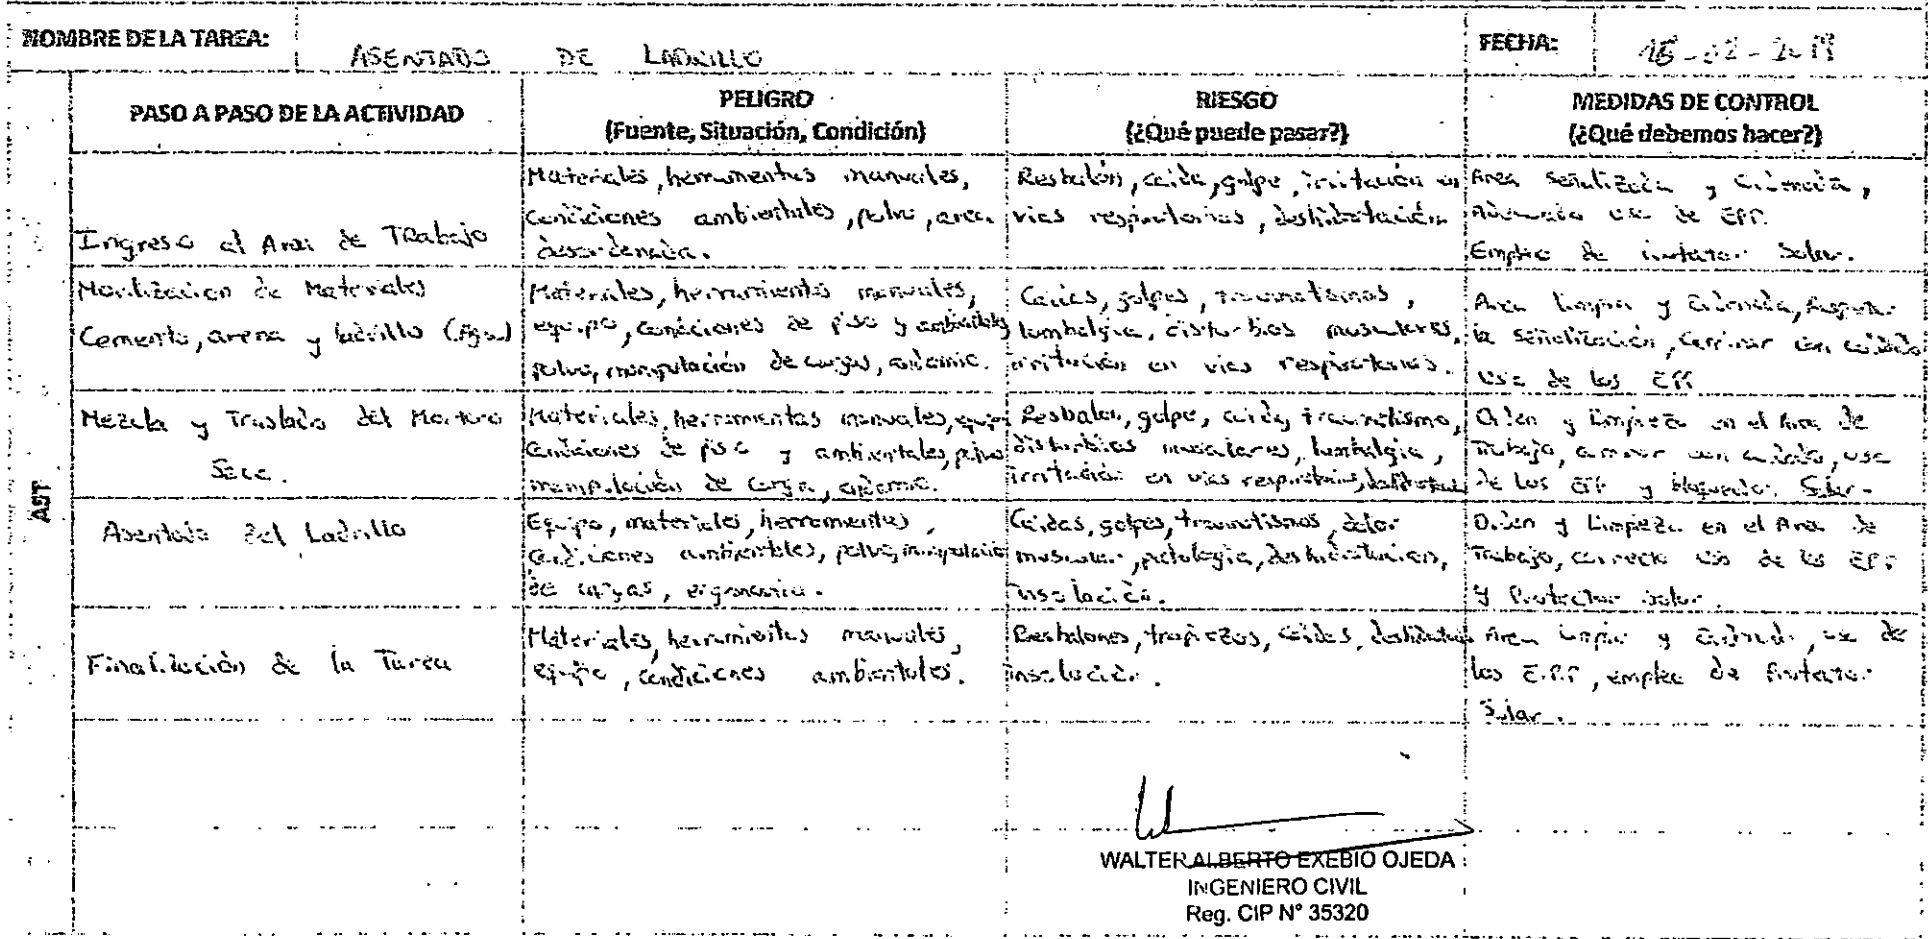 NOMBRE DE LA TAREA: ASENTADO DE LADRILLO FECHA: 15-02-2019
PASO A PASO DE LA ACTIVIDAD
PELIGRO
(Fuente, Situación, Condición)
RIESGO
(¿Qué puede pasar?)
MEDIDAS DE CONTROL
(¿Qué debemos hacer?)
AST
Ingreso al Area de TRabajo
Materiales, herramientas manuales,
condiciones ambientales, polvo, area
desordenada.
Resbalón, caida, golpe, irritación en
vias respiratorias, deshidratación
Area señalizada y ordenada,
Adecuado uso de EPP.
Empleo de Solar.
Movilización de Materiales
Cemento, arena y ladrillo (Agua)
Materiales, herramientas manuales,
equipo, condiciones de piso y ambientales
polvo, manipulación de cargas, andamio.
Caidas, golpes, traumatismos,
lumbalgia, disturbios musculares,
irritación en vias respiratorias.
Area limpia y ordenada, Respetar
la señalización, caminar con cuidado
uso de los EPP
Mezcla y Traslado del Mortero
Seco.
Materiales, herramientas manuales, equipo
condiciones de piso y ambientales, polvo
manipulación de carga, andamio.
Resbalon, golpe, caida, traumatismo,
disturbios musculares, lumbalgia,
irritación en vias respiratorias,
Orden y limpieza en el Area de
Trabajo, caminar con cuidado, uso
de los EPP y bloqueador Solar.
Asentado del Ladrillo
Equipo, materiales, herramientas,
condiciones ambientales, polvo, manipulación
de cargas, ergonomia.
Caidas, golpes, traumatismos, dolor
muscular, patologia, deshidratacion,
insolación.
Orden y Limpieza en el Area de
Trabajo, correcto uso de los EPP
y Protector solar.
Finalización de la Tarea
Materiales, herramientas manuales,
equipo, condiciones ambientales.
Resbalones, tropiezos, caidas,
insolación.
Area limpia y ordenada, uso de
los E.P.P, empleo de Protector
Solar.
WALTER ALBERTO EXEBIO OJEDA
INGENIERO CIVIL
Reg. CIP N° 35320